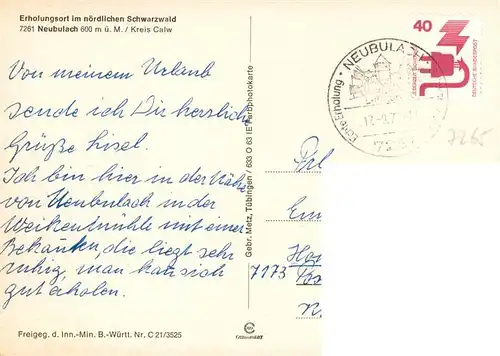 Erholungsort im nördlichen Schwarzwald
7261 Neubulach 600 m ü. M. / Kreis Calw
Von meinem Urlaub
sende ich Dir herzliche
Grüße Liesel.
Ich bin hier in der Nähe
von Neubulach in der
mit einer
Bekannten, die liegt sehr
ruhig, man kann sich
gut erholen.
Freigeg. d. Inn.-Min. B.-Württ. Nr. C 21/3525
Gebr. Metz, Tübingen / 633 O 63 IE Farbphotokarte
NEUBULACH
40
DEUTSCHE BUNDESPOST
7265
Frl.
7173